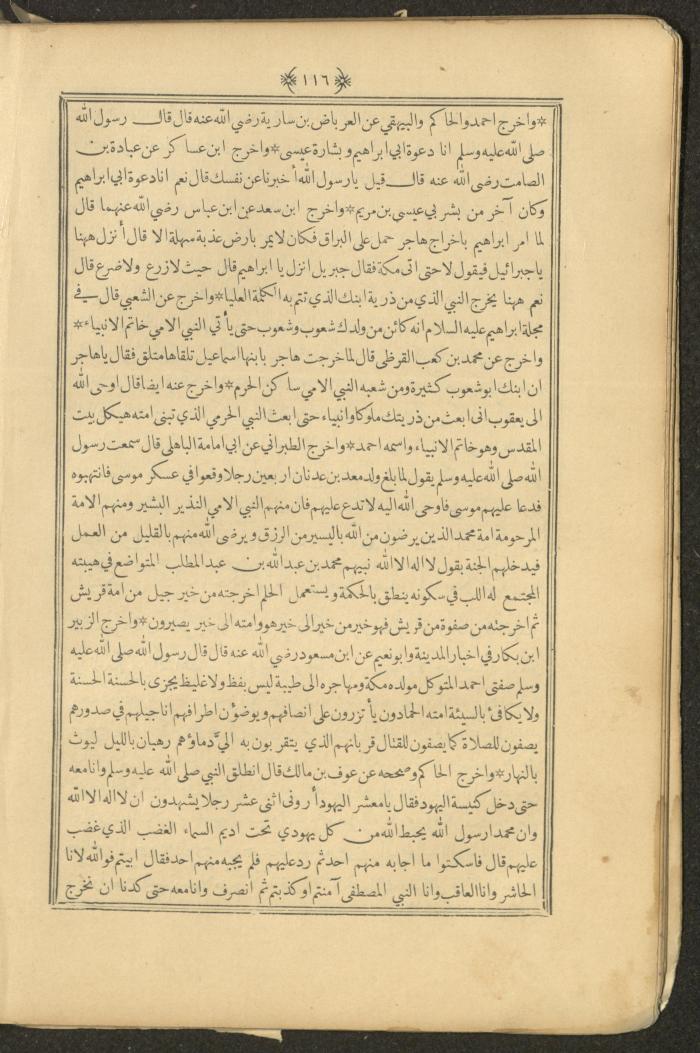 ﴿١١٦﴾
*واخرج احمد والحاكم والبيهقي عن العرباض بن سارية رضي الله عنه قال قال رسول الله
صلى الله عليه وسلم انا دعوة ابي ابراهيم وبشارة عيسى*واخرج ابن عساكر عن عبادة بن
الصامت رضى الله عنه قال قيل يا رسول الله أخبرنا عن نفسك قال نعم انا دعوة ابي ابراهيم
وكان آخر من بشر بي عيسى بن مريم*واخرج ابن سعد عن ابن عباس رضي الله عنهما قال
لما امر ابراهيم باخراج هاجر حمل على البراق فكان لا يمر بارض عذبة سهلة الا قال أنزل ههنا
يا جبرائيل فيقول لا حتى اتى مكة فقال جبريل انزل يا ابراهيم قال حيث لا زرع ولا ضرع قال
نعم ههنا يخرج النبي الذي من ذرية ابنك الذي تتم به الكلمة العليا*واخرج عن الشعبي قال في
مجلة ابراهيم عليه السلام انه كائن من ولدك شعوب وشعوب حتى يأتي النبي الامي خاتم الانبياء*
واخرج عن محمد بن كعب القرظى قال لما خرجت هاجر بابنها اسماعيل تلقاها متلق فقال يا هاجر
ان ابنك ابو شعوب كثيرة ومن شعبه النبي الامي ساكن الحرم*واخرج عنه ايضا قال اوحى الله
الى يعقوب انى ابعث من ذريتك ملوكا وانبياء حتى ابعث النبي الحرمي الذي تبنى امته هيكل بيت
المقدس وهو خاتم الانبياء واسمه احمد*واخرج الطبراني عن ابي امامة الباهلى قال سمعت رسول
الله صلى الله عليه وسلم يقول لما بلغ ولد معد بن عدنان اربعين رجلا وقعوا في عسكر موسى فانتهبوه
فدعا عليهم موسى فاوحى الله اليه لا تدع عليهم فان منهم النبي الامي النذير البشير ومنهم الامة
المرحومة امة محمد الذين يرضون من الله باليسير من الرزق ويرضى الله منهم بالقليل من العمل
فيدخلهم الجنة بقول لا اله الا الله نبيهم محمد بن عبد الله بن عبد المطلب المتواضع في هيبته
المجتمع له اللب في سكونه ينطق بالحكمة ويستعمل الحلم اخرجته من خير جيل من امة قريش
ثم اخرجته من صفوة من قريش فهو خير من خير الى خير هو وامته الى خير يصيرون*واخرج الزبير
ابن بكار في اخبار المدينة وابو نعيم عن ابن مسعود رضي الله عنه قال قال رسول الله صلى الله عليه
وسلم صفتى احمد المتوكل مولده مكة ومهاجره الى طيبة ليس بفظ ولا غليظ يجزى بالحسنة الحسنة
ولا يكافئ بالسيئة امته الحمادون يأتزرون على انصافهم ويوضؤن اطرافهم اناجيلهم في صدورهم
يصفون للصلاة كما يصفون للقتال قربانهم الذي يتقربون به اليَّ دماؤهم رهبان بالليل ليوث
بالنهار*واخرج الحاكم وصححه عن عوف بن مالك قال انطلق النبي صلى الله عليه وسلم وانا معه
حتى دخل كنيسة اليهود فقال يا معشر اليهود أرونى اثنى عشر رجلا يشهدون ان لا اله الا الله
وان محمدا رسول الله يحبط الله من كل يهودي تحت اديم السماء الغضب الذي غضب
عليهم قال فاسكتوا ما اجابه منهم احد ثم رد عليهم فلم يجبه منهم احد فقال ابيتم فو الله لانا
الحاشر وانا العاقب وانا النبي المصطفى آمنتم او كذبتم ثم انصرف وانا معه حتى كدنا ان نخرج